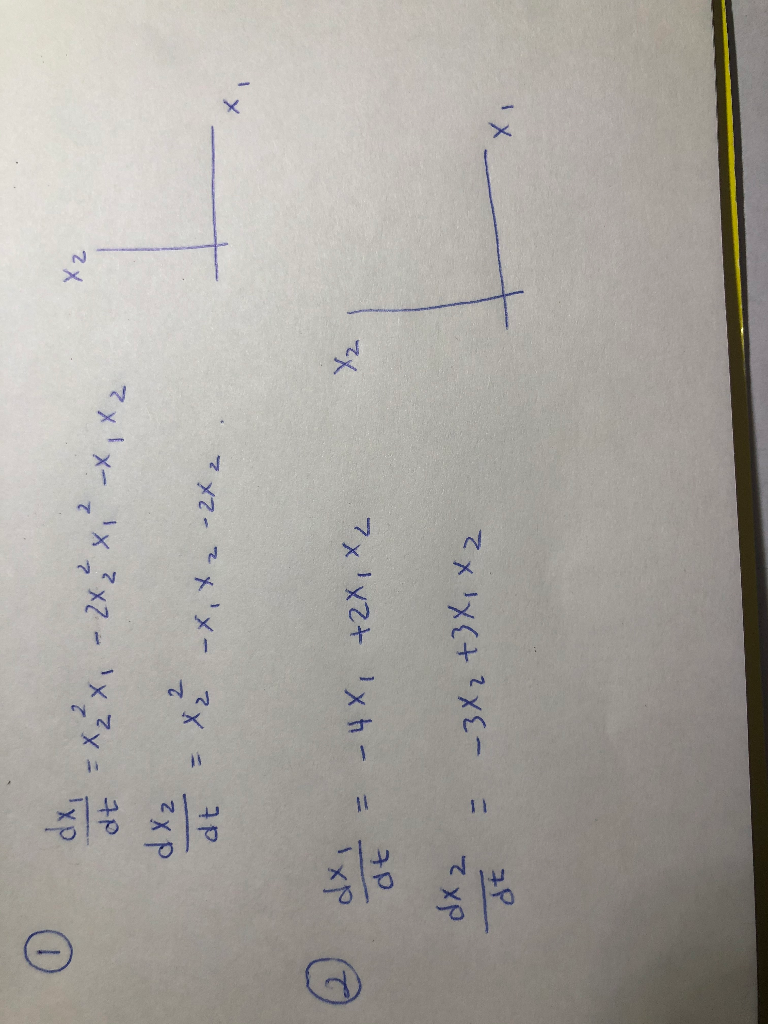 ①
dx₁/dt = x₂²x₁ - 2x₂²x₁² - x₁x₂
dx₂/dt = x₂² - x₁x₂ - 2x₂.
x₂
x₁
②
dx₁/dt = -4x₁ + 2x₁x₂
dx₂/dt = -3x₂ + 3x₁x₂
x₂
x₁